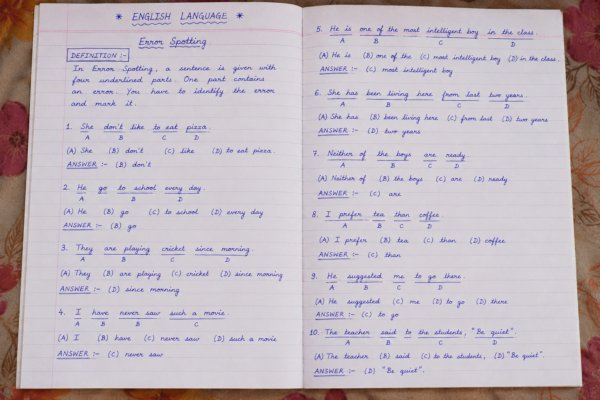 * ENGLISH LANGUAGE *
Error Spotting
DEFINITION :-
In Error Spotting, a sentence is given with
four underlined parts. One part contains
an error. You have to identify the error
and mark it.
1. She don't like to eat pizza.
A B C D
(A) She (B) don't (C) like (D) to eat pizza.
ANSWER :- (B) don't
2. He go to school every day.
A B D
(A) He (B) go (C) to school (D) every day
ANSWER :- (B) go
3. They are playing cricket since morning.
A B C D
(A) They (B) are playing (C) cricket (D) since morning
ANSWER :- (D) since morning
4. I have never saw such a movie.
A B B C
(A) I (B) have (C) never saw (D) such a movie
ANSWER :- (C) never saw
5. He is one of the most intelligent boy in the class.
A B C D
(A) He is (B) one of the (C) most intelligent boy (D) in the class.
ANSWER :- (C) most intelligent boy
6. She has been living here from last two years.
A B C D
(A) She has (B) been living here (C) from last (D) two years
ANSWER :- (D) two years
7. Neither of the boys are ready.
A B C D
(A) Neither of (B) the boys (C) are (D) ready
ANSWER :- (C) are
8. I prefer tea than coffee.
A B C D
(A) I prefer (B) tea (C) than (D) coffee
ANSWER :- (C) than
9. He suggested me to go there.
A B C D
(A) He suggested (C) me (D) to go (D) there
ANSWER :- (C) to go
10. The teacher said to the students, "Be quiet".
A B C D
(A) The teacher (B) said (C) to the students, (D) "Be quiet".
ANSWER :- (D) "Be quiet".